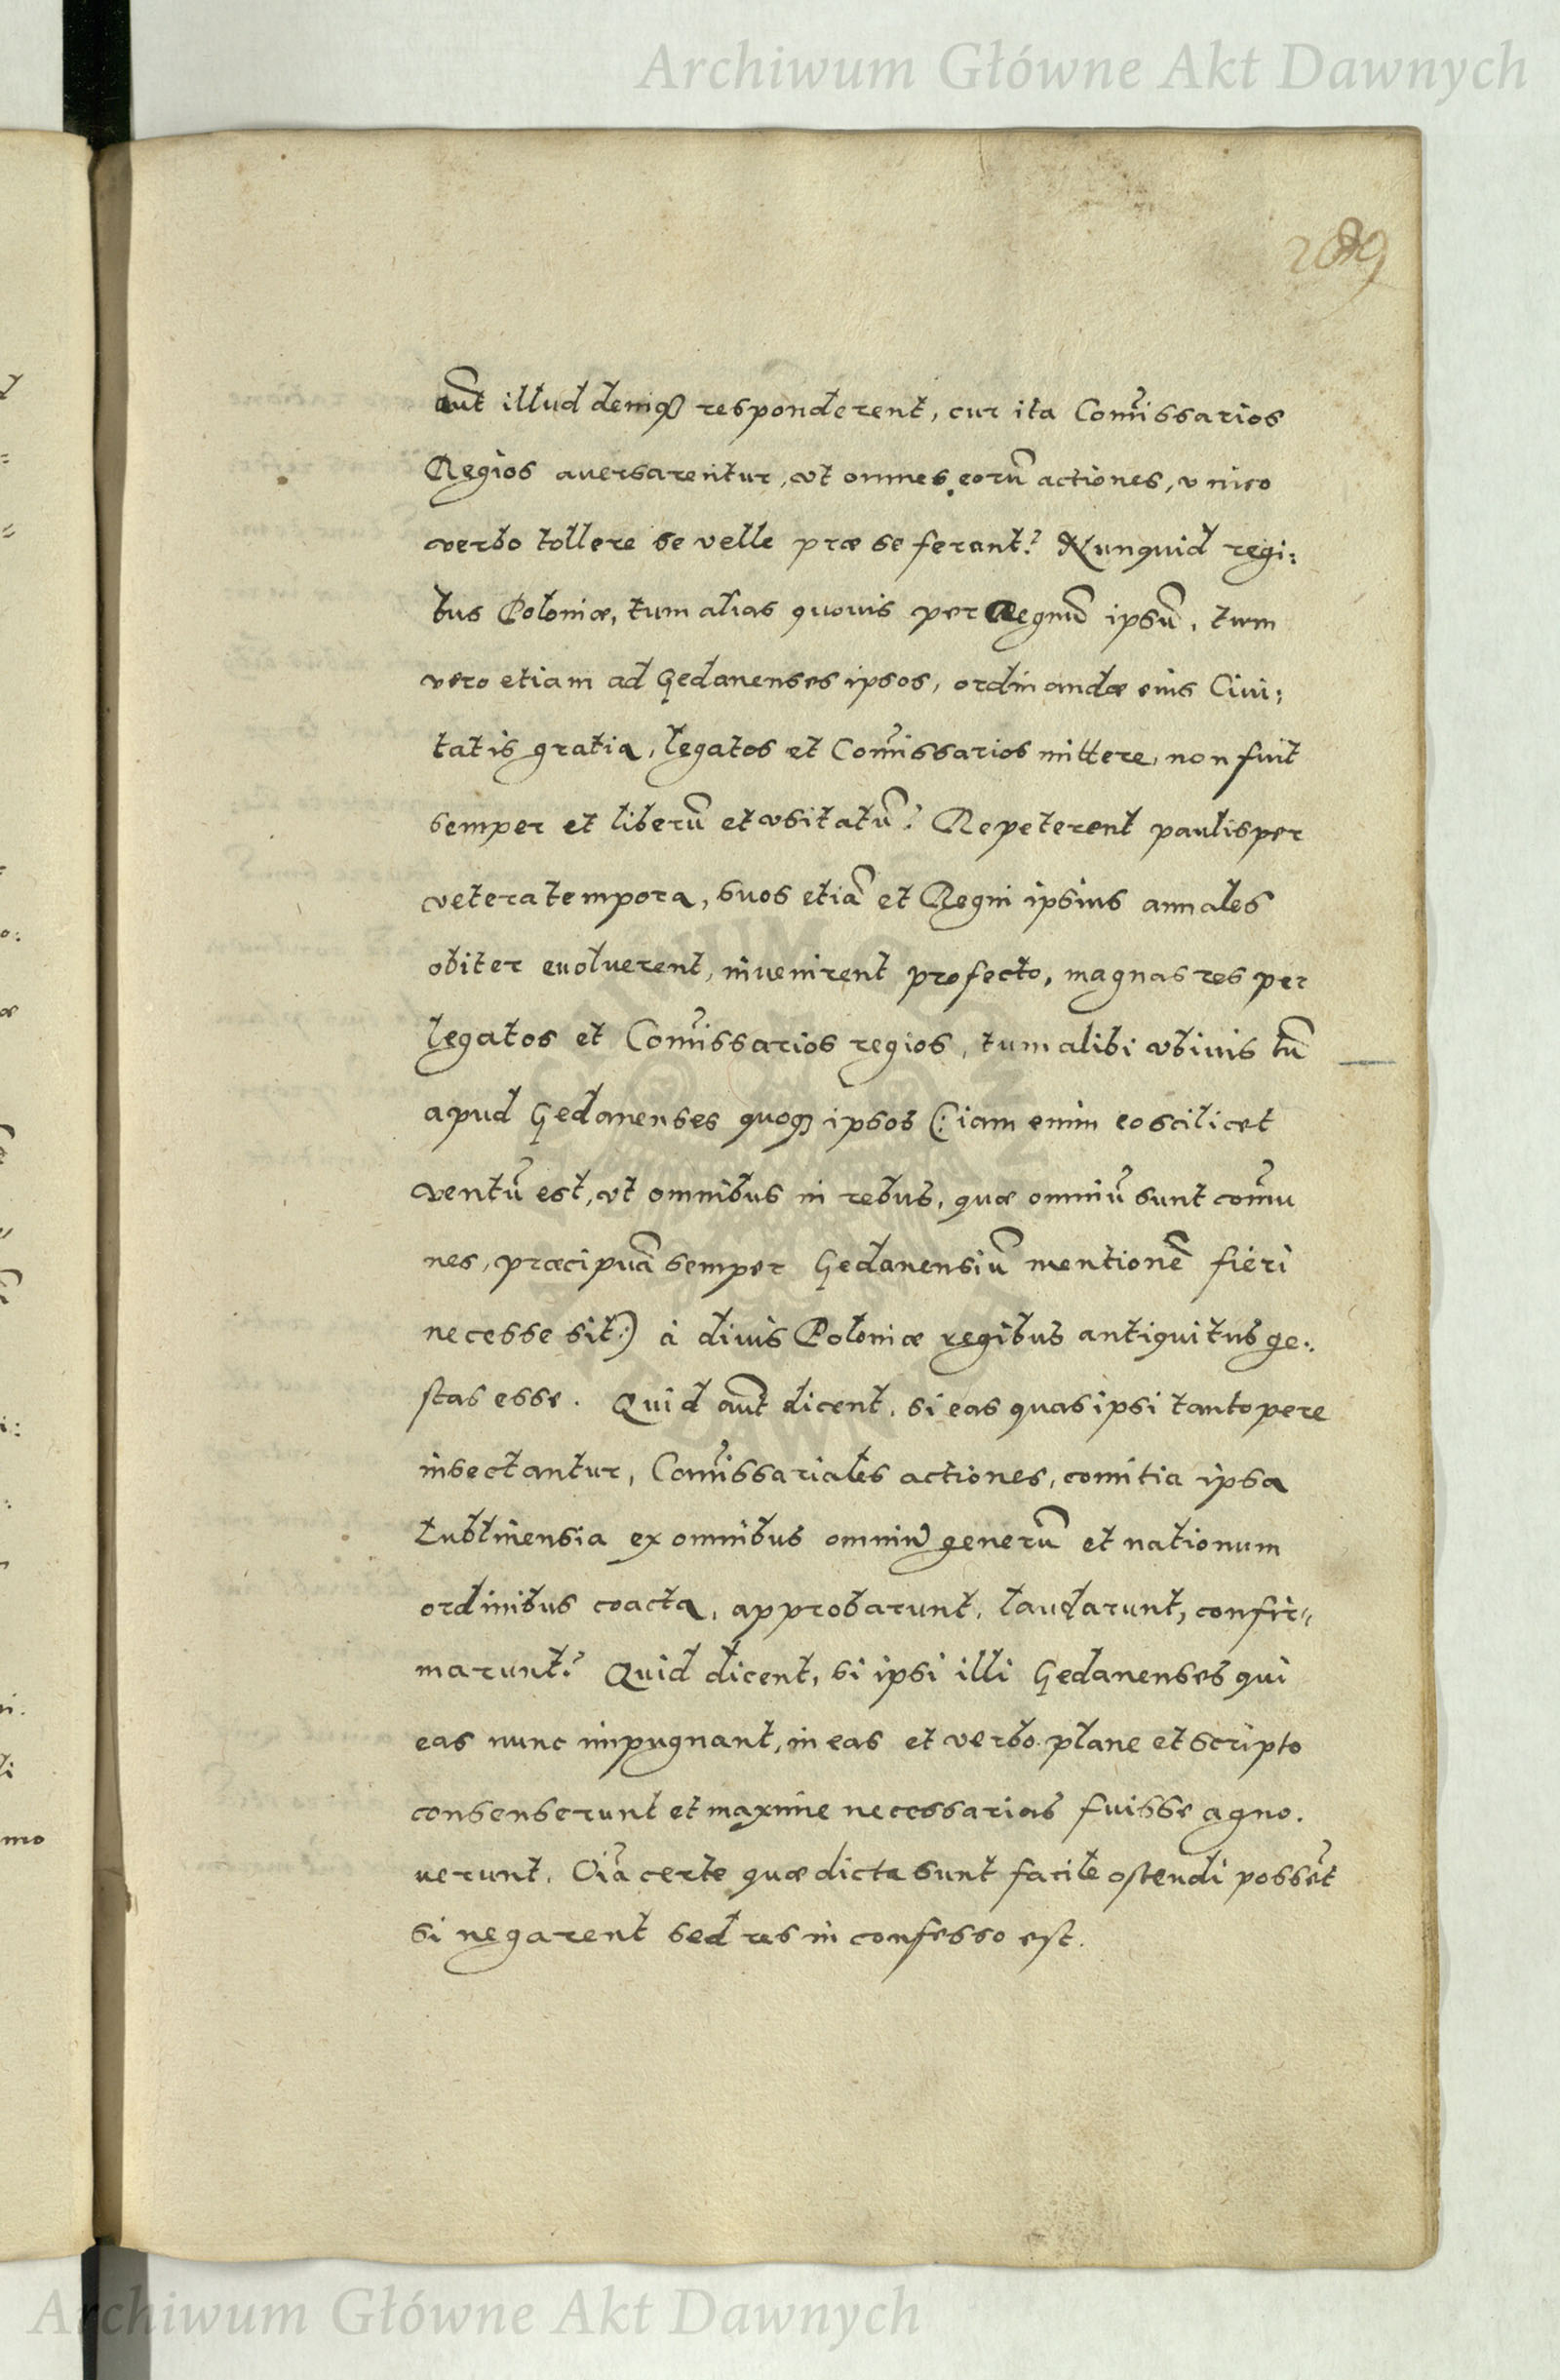 Archiwum Główne Akt Dawnych
aut̃ illud deniq̃ responderent, cur ita Com̃issarios
Regios auersarentur, vt omnes eorũ actiones, vnico
verbo tollere se velle præ se ferant? Nunquid regi:
bus Poloniæ, tum alias quouis per Regnũ ipsũ, tum
vero etiam ad Gedanenses ipsos, ordinandæ eius Ciui:
tatis gratia, legatos et Com̃issarios mittere, non fuit
semper et liberũ et vsitatũ? Repeterent paulisper
vetera tempora, suos etiã et Regni ipsius annales
obiter euoluerent, inuenirent profecto, magnas res per
legatos et Com̃issarios regios, tum alibi vbiuis tũ
apud Gedanenses quoq̃ ipsos (: iam enim eo scilicet
ventũ est, vt omnibus in rebus, quæ omniũ sunt com̃u
nes, præcipuã semper Gedanensiũ mentionẽ fieri
necesse sit:) à diuis Poloniæ regibus antiquitus ge:
stas esse. Quid aut̃ dicent, si eas quas ipsi tantopere
insectantur, Com̃issariales actiones, comitia ipsa
Lublinensia ex omnibus omniũ generũ et nationum
ordinibus coacta, approbarunt, laudarunt, confir„
marunt? Quid dicent, si ipsi illi Gedanenses qui
eas nunc impugnant, in eas et verbo plane et scripto
consenserunt et maxime necessarias fuisse agno.
uerunt. Oĩa certe quæ dicta sunt facile ostendi possẽt
si negarent sed res in confesso est.
Archiwum Główne Akt Dawnych